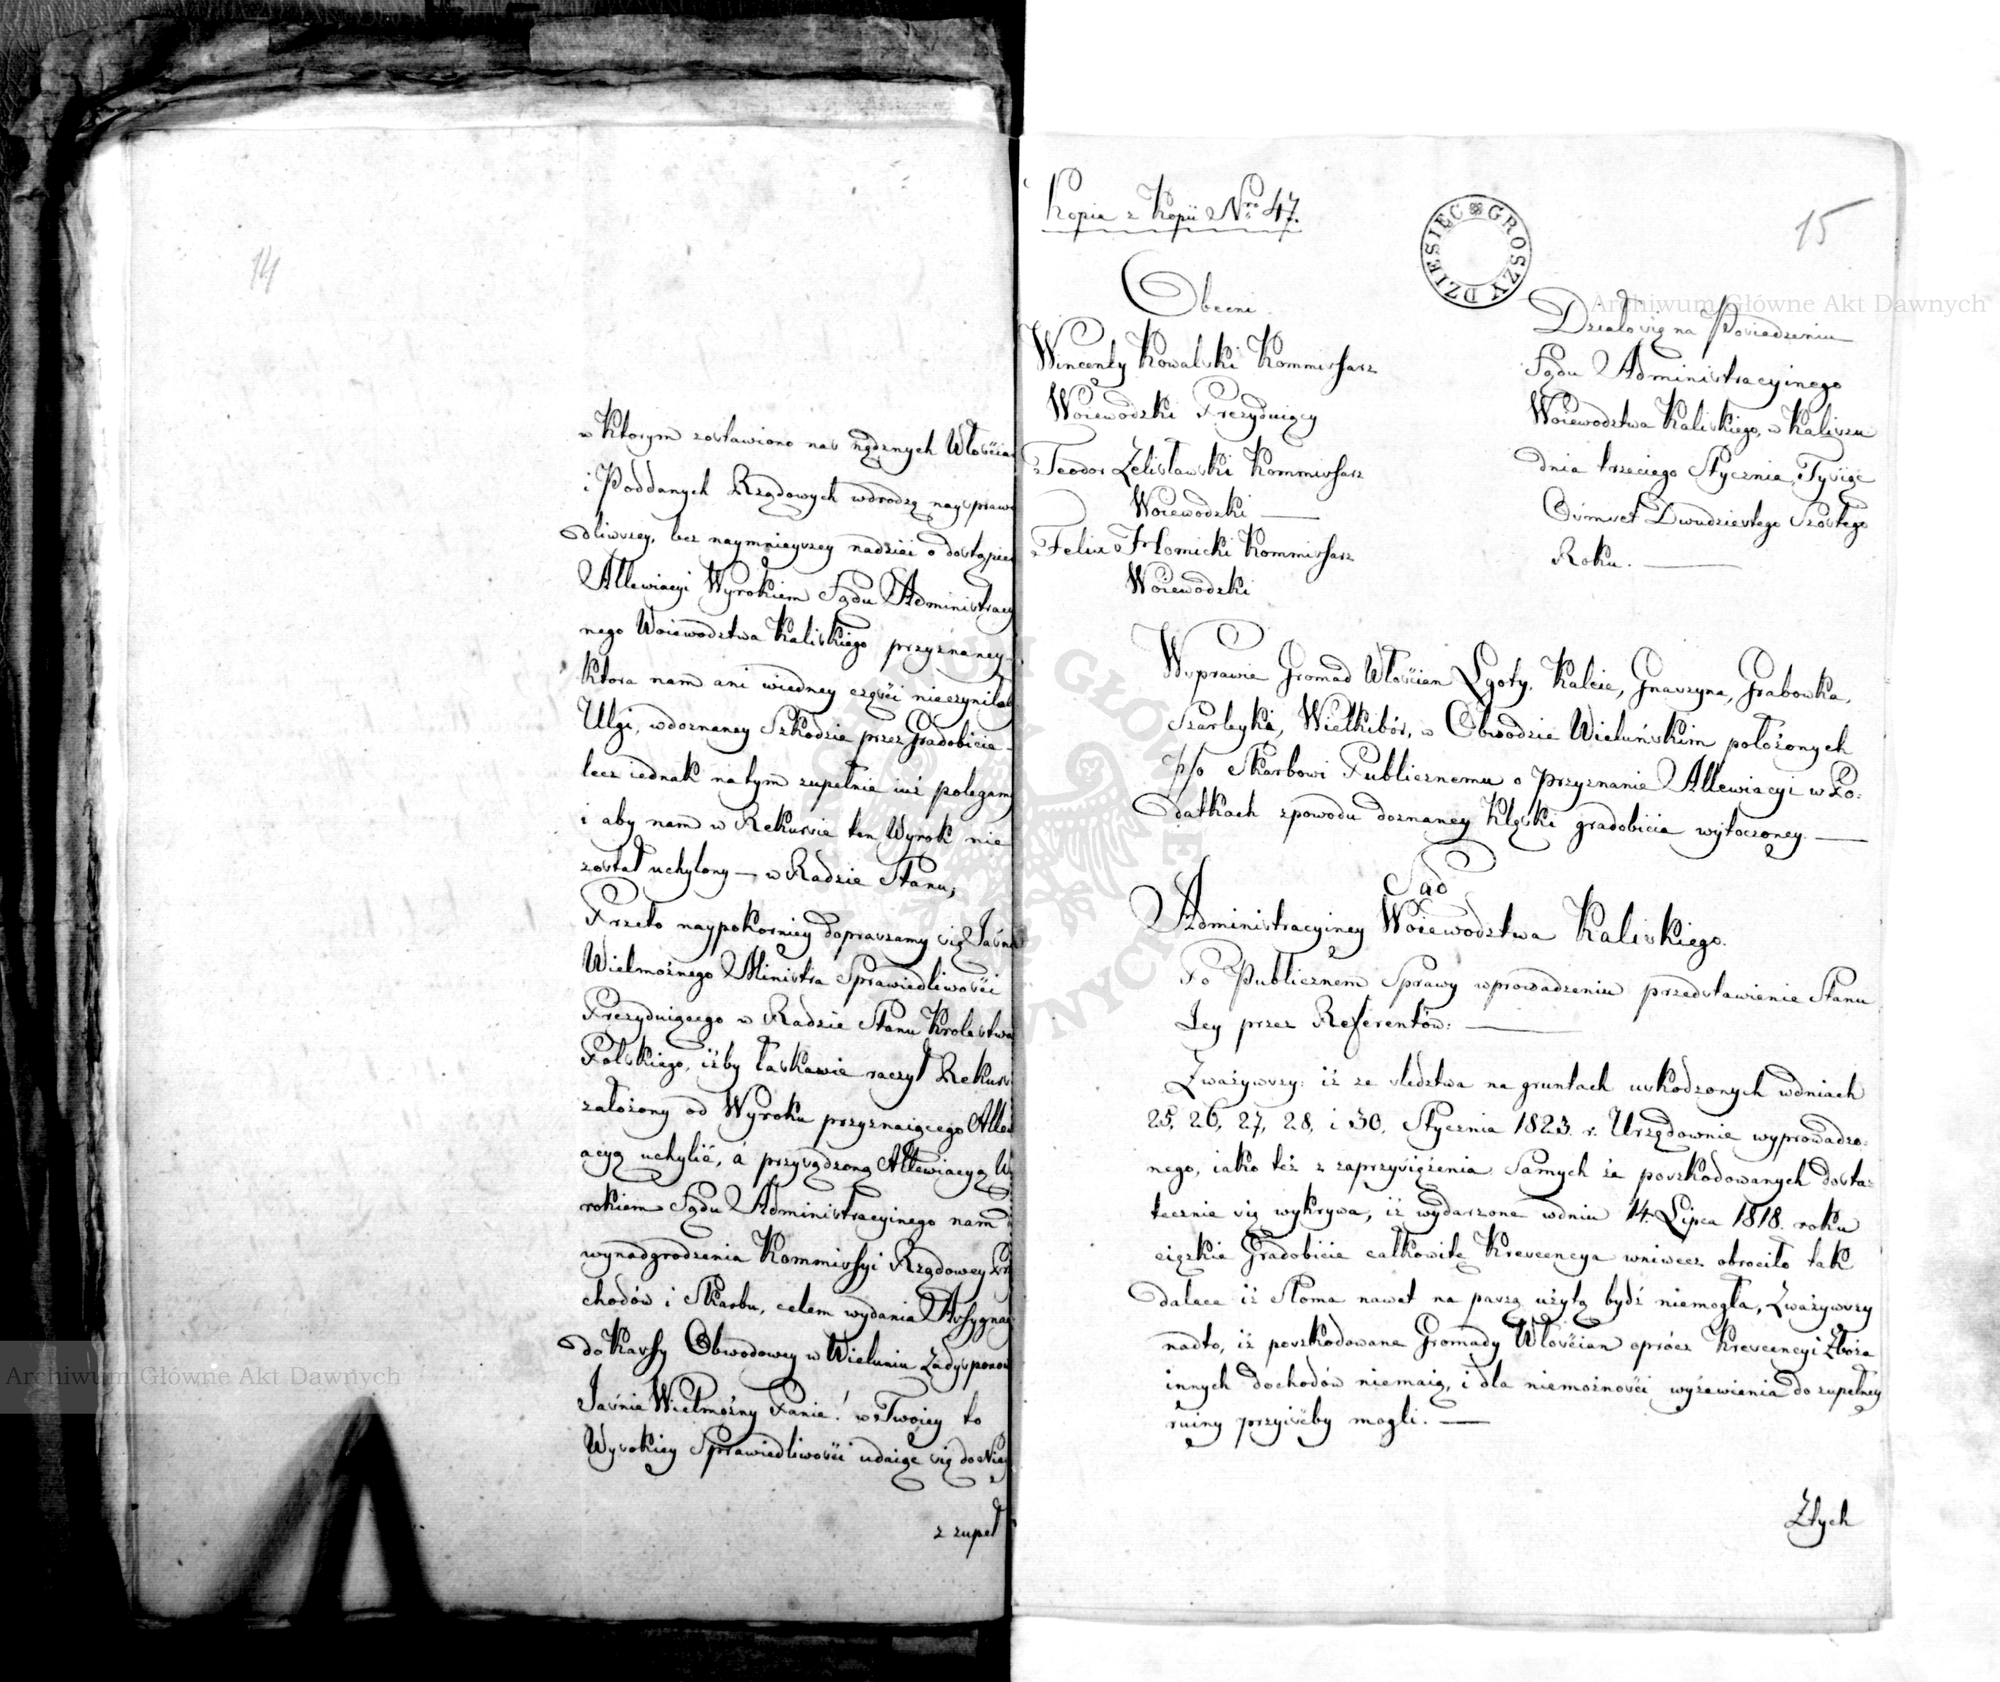 14
w Ktorym zostawiono nas nędznych Włościan
i Poddanych Rządowych wdrodzę nayspraw
dliwszey, bez naymnieyszey nadziei o dostąpie
Allewiacyi Wyrokiem Sądu Administracy
nego Woiewodztwa Kaliskiego przyznaney
ktora nam ani wiedney częsci nieczyniła
Ulgi, wdoznaney Szkodzie przez Gradobicia
lecz iednak na tym zupełnie iuż polegamy
i aby nam w Rekursie ten Wyrok nie
został uchylony — w Radzie Stanu,
Przeto naypokorniey dopraszamy się Jaśnie
Wielmożnego Ministra Sprawiedliwości
Prezyduiącego w Radzie Stanu Krolestwa
Polskiego, iżby łaskawie raczył Rekurs
założony od Wyroku przyznaiącego Alle
acyą uchylić, á przysądzoną Allewiacyą Wy
rokiem Sądu Administracyinego nam
wynadgrodzenia Kommissyi Rządowey Pr
chodów i Skarbu, celem wydania Assygna
do Kassy Obwodowey w Wieluniu Zadyspono
Jaśnie Wielmożny Panie! w Twoiey to
Wysokiey Sprawiedliwości udaiąc się do Niey
z zupeł
Kopia z Kopii Nro 47.
15
DZIESIEC GROSZY
Obecni
Wincenty Kowalski Kommissarz
Woiewodzki Prezyduiący
Teodor Zelisławski Kommissarz
Woiewodzki —
Felix Słomicki Kommissarz
Woiewodzki
Działo się na Posiadzeniu
Sądu Administracyinego
Woiewodztwa Kaliskiego, w Kaliszu
dnia trzeciego Stycznia, Tysiąc
Ośmset Dwudziestego Szostego
Roku. —
Wsprawie Gromad Włościan Lgoty, Kalcie, Gnaszyna, Grabowka,
Szarleyka, Wielkibór, w Obwodzie Wieluńskim położonych
p/o Skarbowi Publicznemu o Przyznanie Allewiacyi w Po:
datkach zpowodu doznaney Klęski gradobicia wytoczoney. —
Sąd
Administracyiney Woiewodztwa Kaliskiego.
Po Publicznem Sprawy wprowadzeniu przedstawienie Stanu
Jey przez Referentów: —
Zważywszy: iż ze sledztwa na gruntach uskodzonych wdniach
25, 26, 27, 28, i 30, Stycznia 1823. r. Urzędownie wyprowadzo:
nego, iako też z zaprzysiężenia Samych że poszkodowanych dosta:
tecznie się wykrywa, iż wydarzone wdniu 14. Lipca 1818. roku
cięzkie Gradobicie całkowitę Krescencya wniwecz obrociło tak
dalece iż Słoma nawet na paszą użytą bydź niemogła, Zważywszy
nadto, iż poszkodowane Gromady Włościan oprócz Krescencyi Zboża
innych dochodów niemaią, i dla niemożności wyżewienia do zupełney
ruiny przyiśćby mogli. —
Złych
Archiwum Główne Akt Dawnych
Archiwum Główne Akt Dawnych